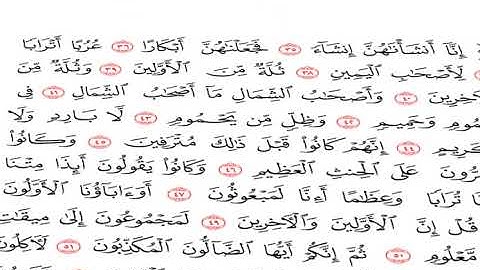 إِنَّآ أَنشَأْنَٰهُنَّ إِنشَآءً ٣٥ فَجَعَلْنَٰهُنَّ أَبْكَارًا ٣٦ عُرُبًا أَتْرَابًا
لِّأَصْحَٰبِ ٱلْيَمِينِ ٣٨ ثُلَّةٌ مِّنَ ٱلْأَوَّلِينَ ٣٩ وَثُلَّةٌ مِّنَ
ٱلْءَاخِرِينَ ٤٠ وَأَصْحَٰبُ ٱلشِّمَالِ مَآ أَصْحَٰبُ ٱلشِّمَالِ ٤١ فِى
مُومٍ وَحَمِيمٍ ٤٢ وَظِلٍّ مِّن يَحْمُومٍ ٤٣ لَّا بَارِدٍ وَلَا
كَرِيمٍ ٤٤ إِنَّهُمْ كَانُوا۟ قَبْلَ ذَٰلِكَ مُتْرَفِينَ ٤٥ وَكَانُوا۟
رُّونَ عَلَى ٱلْحِنثِ ٱلْعَظِيمِ ٤٦ وَكَانُوا۟ يَقُولُونَ أَئِذَا مِتْنَا
ا تُرَابًا وَعِظَٰمًا أَءِنَّا لَمَبْعُوثُونَ ٤٧ أَوَءَابَآؤُنَا ٱلْأَوَّلُونَ
قُلْ إِنَّ ٱلْأَوَّلِينَ وَٱلْءَاخِرِينَ ٤٩ لَمَجْمُوعُونَ إِلَىٰ مِيقَٰتِ
مَّعْلُومٍ ٥٠ ثُمَّ إِنَّكُمْ أَيُّهَا ٱلضَّآلُّونَ ٱلْمُكَذِّبُونَ ٥١ لَءَاكِلُونَ